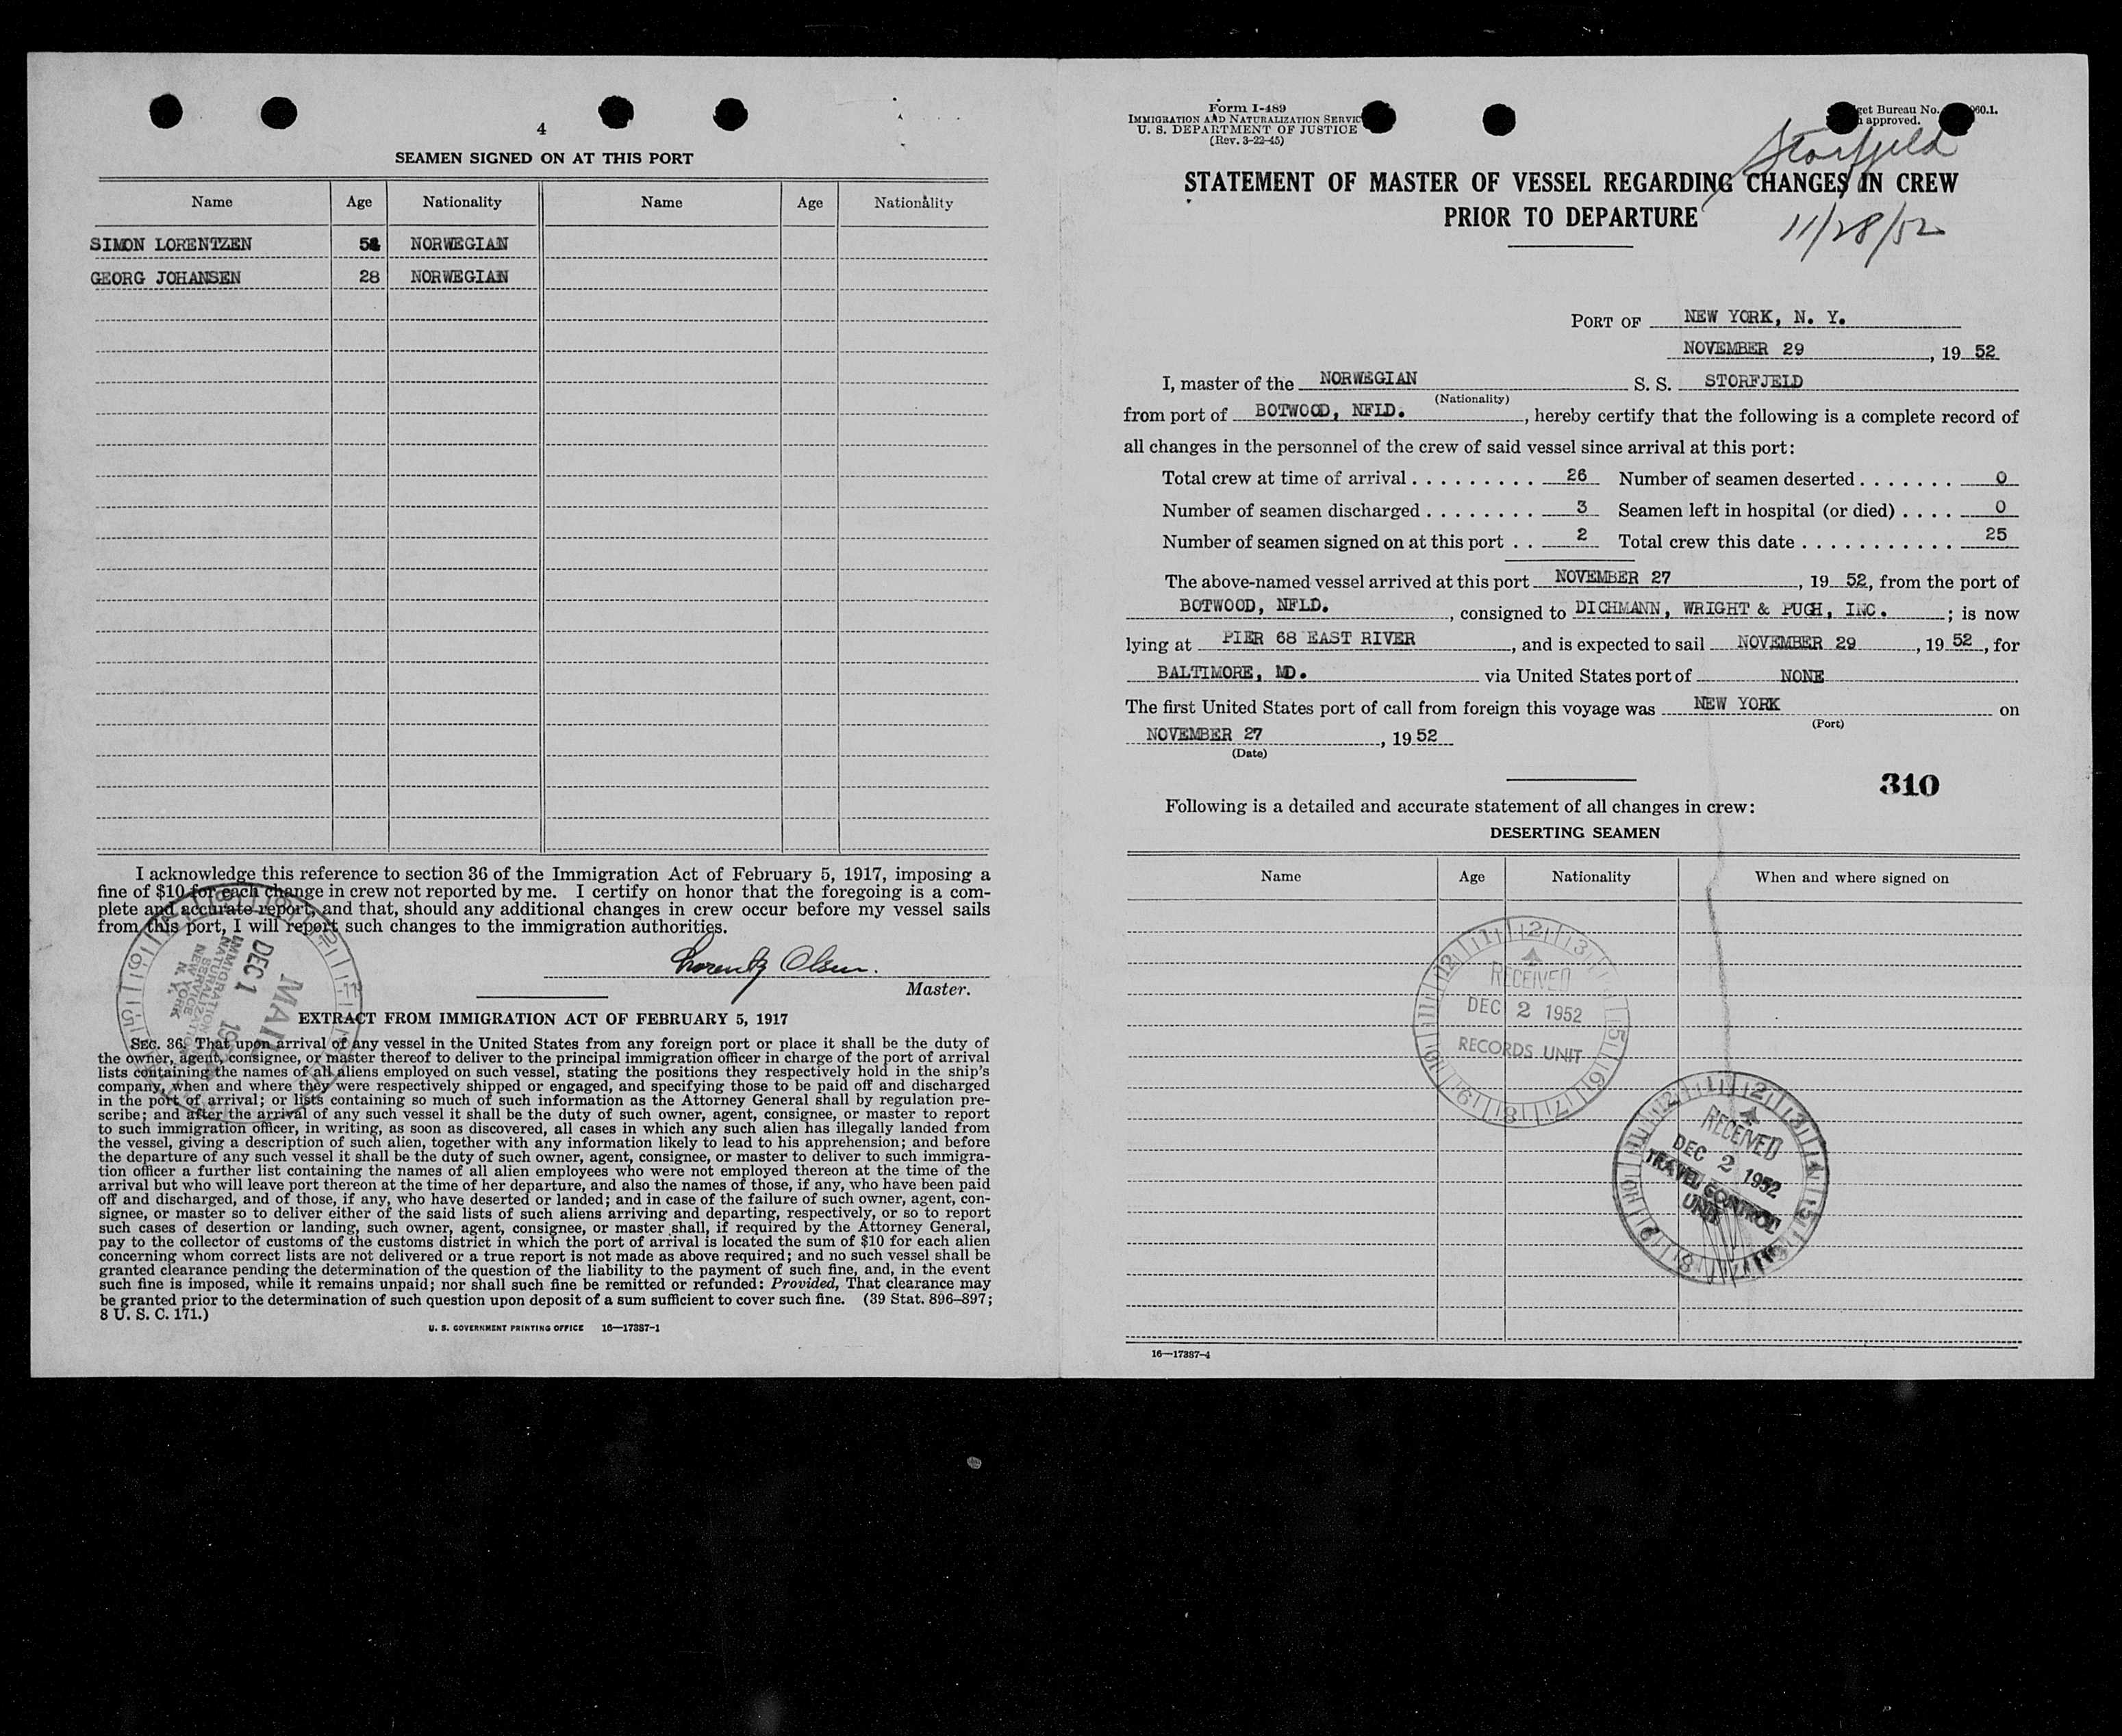 4
SEAMEN SIGNED ON AT THIS PORT
Name Age Nationality Name Age Nationality
SIMON LORENTZEN NORWEGIAN
GEORG JOHANSEN 28 NORWEGIAN
I acknowledge this reference to section 36 of the Immigration Act of February 5, 1917, imposing a
fine of $10 for each change in crew not reported by me. I certify on honor that the foregoing is a com-
plete and accurate report, and that, should any additional changes in crew occur before my vessel sails
from this port, I will report such changes to the immigration authorities.
Lorentz Olsen.
Master.
MAIL
DEC 1
IMMIGRATION
NATURALIZATION
SERVICE
NEW YORK
N. Y.
EXTRACT FROM IMMIGRATION ACT OF FEBRUARY 5, 1917
SEC. 36. That upon arrival of any vessel in the United States from any foreign port or place it shall be the duty of
the owner, agent, consignee, or master thereof to deliver to the principal immigration officer in charge of the port of arrival
lists containing the names of all aliens employed on such vessel, stating the positions they respectively hold in the ship's
company, when and where they were respectively shipped or engaged, and specifying those to be paid off and discharged
in the port of arrival; or lists containing so much of such information as the Attorney General shall by regulation pre-
scribe; and after the arrival of any such vessel it shall be the duty of such owner, agent, consignee, or master to report
to such immigration officer, in writing, as soon as discovered, all cases in which any such alien has illegally landed from
the vessel, giving a description of such alien, together with any information likely to lead to his apprehension; and before
the departure of any such vessel it shall be the duty of such owner, agent, consignee, or master to deliver to such immigra-
tion officer a further list containing the names of all alien employees who were not employed thereon at the time of the
arrival but who will leave port thereon at the time of her departure, and also the names of those, if any, who have been paid
off and discharged, and of those, if any, who have deserted or landed; and in case of the failure of such owner, agent, con-
signee, or master so to deliver either of the said lists of such aliens arriving and departing, respectively, or so to report
such cases of desertion or landing, such owner, agent, consignee, or master shall, if required by the Attorney General,
pay to the collector of customs of the customs district in which the port of arrival is located the sum of $10 for each alien
concerning whom correct lists are not delivered or a true report is not made as above required; and no such vessel shall be
granted clearance pending the determination of the question of the liability to the payment of such fine, and, in the event
such fine is imposed, while it remains unpaid; nor shall such fine be remitted or refunded: Provided, That clearance may
be granted prior to the determination of such question upon deposit of a sum sufficient to cover such fine. (39 Stat. 896–897;
8 U. S. C. 171.)
U. S. GOVERNMENT PRINTING OFFICE 16—17387-1
Form I-489
IMMIGRATION AND NATURALIZATION
U. S. DEPARTMENT OF JUSTICE
(Rev. 3-22-45)
Bureau No. 60.1.
approved.
Storfjeld
STATEMENT OF MASTER OF VESSEL REGARDING CHANGES IN CREW
PRIOR TO DEPARTURE
11/28/52
PORT OF NEW YORK, N. Y.
NOVEMBER 29, 19 52
I, master of the NORWEGIAN S. S. STORFJELD
(Nationality)
from port of BOTWOOD, NFLD., hereby certify that the following is a complete record of
all changes in the personnel of the crew of said vessel since arrival at this port:
Total crew at time of arrival . . . . . . . . . 26 Number of seamen deserted . . . . . . . 0
Number of seamen discharged . . . . . . . . 3 Seamen left in hospital (or died) . . . . 0
Number of seamen signed on at this port . . 2 Total crew this date . . . . . . . . . . . . 25
The above-named vessel arrived at this port NOVEMBER 27, 19 52, from the port of
BOTWOOD, NFLD., consigned to DICHMANN, WRIGHT & PUGH, INC. ; is now
lying at PIER 68 EAST RIVER, and is expected to sail NOVEMBER 29, 19 52, for
BALTIMORE, MD. via United States port of NONE
The first United States port of call from foreign this voyage was NEW YORK on
(Port)
NOVEMBER 27, 19 52
(Date)
310
Following is a detailed and accurate statement of all changes in crew:
DESERTING SEAMEN
Name Age Nationality When and where signed on
RECEIVED
DEC 2 1952
RECORDS UNIT
RECEIVED
DEC 2 1952
TRAVEL CONTROL
UNIT
16—17387-4